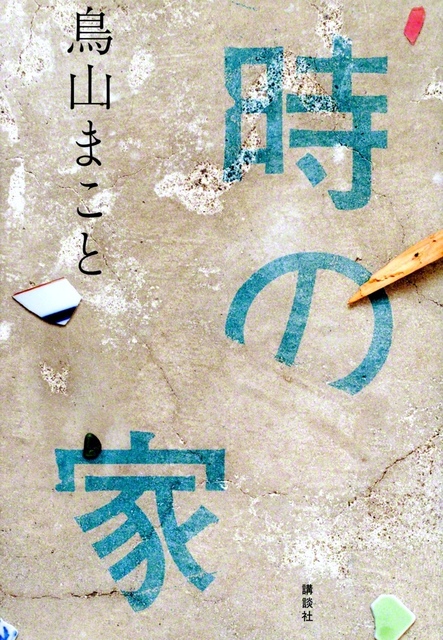 時の家
鳥山まこと
講談社